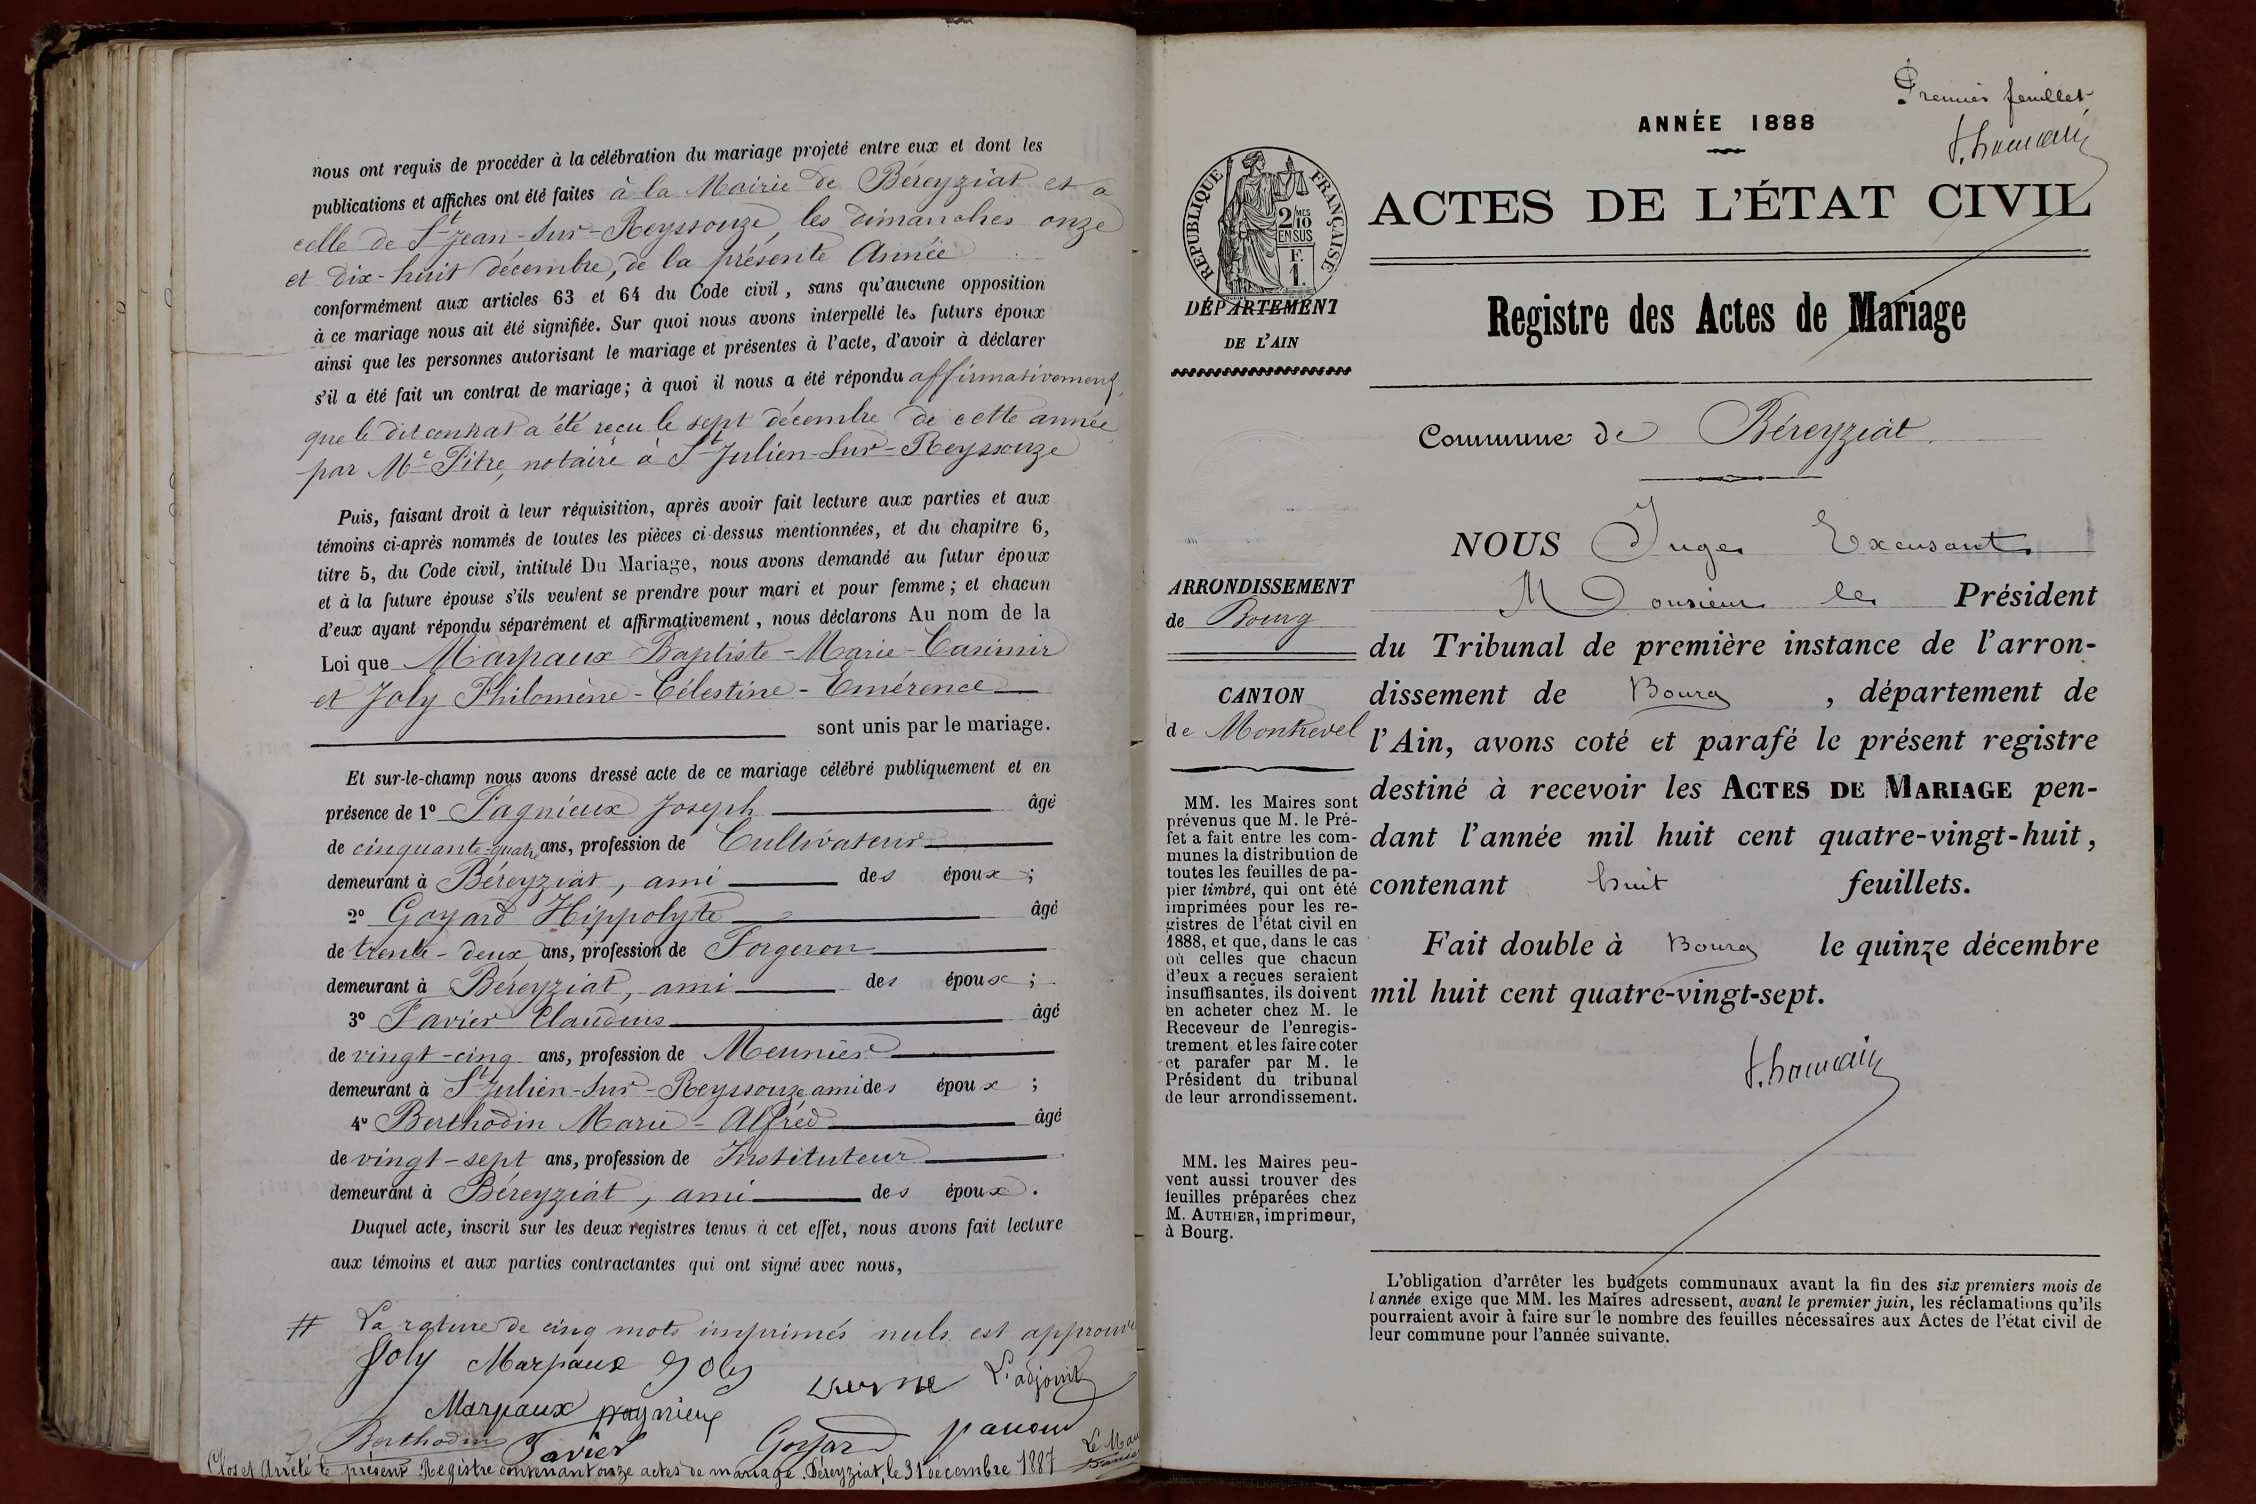 nous ont requis de procéder à la célébration du mariage projeté entre eux et dont les
publications et affiches ont été faites à la Mairie de Béreyziat et a
celle de St Jean-sur-Reyssouze, les dimanches onze
et dix-huit décembre, de la présente Année
conformément aux articles 63 et 64 du Code civil, sans qu'aucune opposition
à ce mariage nous ait été signifiée. Sur quoi nous avons interpellé les futurs époux
ainsi que les personnes autorisant le mariage et présentes à l'acte, d'avoir à déclarer
s'il a été fait un contrat de mariage; à quoi il nous a été répondu affirmativement,
que le dit contrat a été reçu le sept décembre de cette année
par Me Pitre, notaire à St Julien-Sur-Reyssouze
Puis, faisant droit à leur réquisition, après avoir fait lecture aux parties et aux
témoins ci-après nommés de toutes les pièces ci-dessus mentionnées, et du chapitre 6,
titre 5, du Code civil, intitulé Du Mariage, nous avons demandé au futur époux
et à la future épouse s'ils veulent se prendre pour mari et pour femme; et chacun
d'eux ayant répondu séparément et affirmativement, nous déclarons Au nom de la
Loi que Marpaux Baptiste-Marie-Casimir
et Joly Philomène-Célestine-Emérence
sont unis par le mariage.
Et sur-le-champ nous avons dressé acte de ce mariage célébré publiquement et en
présence de 1° Pagnieux Joseph âgé
de cinquante-quatre ans, profession de Cultivateur
demeurant à Béreyziat, ami des époux;
2° Goyard Hippolyte âgé
de trente-deux ans, profession de Forgeron
demeurant à Béreyziat, ami des époux;
3° Favier Claudius âgé
de vingt-cinq ans, profession de Meunier
demeurant à St Julien-Sur-Reyssouze ami des époux;
4° Berthodin Marie-Alfred âgé
de vingt-sept ans, profession de Instituteur
demeurant à Béreyziat, ami des époux.
Duquel acte, inscrit sur les deux registres tenus à cet effet, nous avons fait lecture
aux témoins et aux parties contractantes qui ont signé avec nous,
# La rature de cinq mots imprimés nuls est approuvé
Joly Marpaux Joly L'adjoint
Marpaux pagnieux
Berthodin Favier Goyard
Clos et Arrêté le présent Registre contenant onze actes de mariage. Béreyziat, le 31 décembre 1887 Le Mai
Premier feuillet
ANNÉE 1888
RÉPUBLIQUE FRANÇAISE
2 MES
10
EN SUS
F.
1.
ACTES DE L'ÉTAT CIVIL
DÉPARTEMENT
DE L'AIN
Registre des Actes de Mariage
Commune de Béreyziat
NOUS Juge Excusant
Monsieur le Président
du Tribunal de première instance de l'arron-
dissement de Bourg, département de
l'Ain, avons coté et parafé le présent registre
destiné à recevoir les ACTES DE MARIAGE pen-
dant l'année mil huit cent quatre-vingt-huit,
contenant huit feuillets.
Fait double à Bourg le quinze décembre
mil huit cent quatre-vingt-sept.
ARRONDISSEMENT
de Bourg
CANTON
de Montrevel
MM. les Maires sont
prévenus que M. le Pré-
fet a fait entre les com-
munes la distribution de
toutes les feuilles de pa-
pier timbré, qui ont été
imprimées pour les re-
gistres de l'état civil en
1888, et que, dans le cas
où celles que chacun
d'eux a reçues seraient
insuffisantes, ils doivent
en acheter chez M. le
Receveur de l'enregis-
trement et les faire coter
et parafer par M. le
Président du tribunal
de leur arrondissement.
MM. les Maires peu-
vent aussi trouver des
feuilles préparées chez
M. AUTHIER, imprimeur,
à Bourg.
L'obligation d'arrêter les budgets communaux avant la fin des six premiers mois de
l'année exige que MM. les Maires adressent, avant le premier juin, les réclamations qu'ils
pourraient avoir à faire sur le nombre des feuilles nécessaires aux Actes de l'état civil de
leur commune pour l'année suivante.